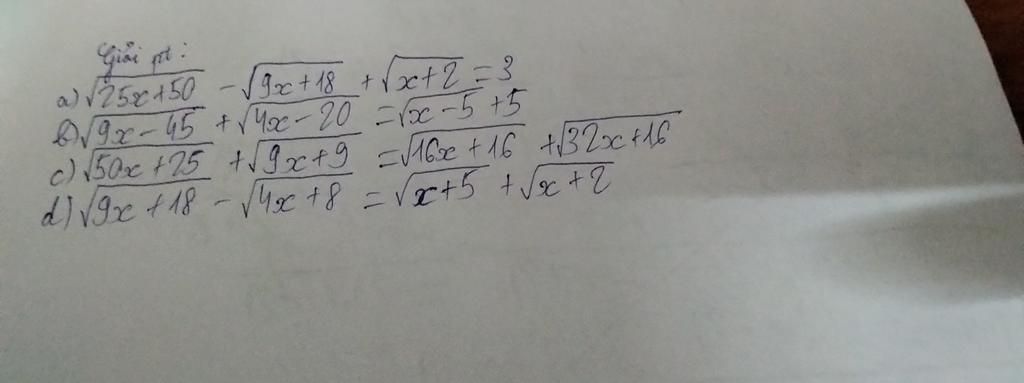 Giải pt:
a) √25x+50 - √9x+18 + √x+2 = 3
b) √9x-45 + √4x-20 = √x-5 + 5
c) √50x+25 + √9x+9 = √16x+16 + √32x+16
d) √9x+18 - √4x+8 = √x+5 + √x+2